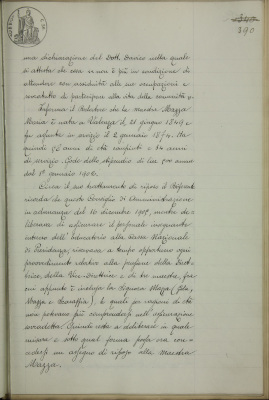 390
una dichiarazione del Dott. Davico nella quale
si attesta che essa si non è più in condizione di
attendere con assiduità alle sue occupazioni e
di partecipare alla vita della comunità.
Informa il Relatore che la maestra Mazza
Maria è nata a il 21 giugno 1849 e
fu assunta in servizio il 2 gennaio 18
quindi anni di età compiuti e anni
di servizio. Gode dello stipendio di lire per anno
dal 1° gennaio
Circa il suo trattamento di riposo il Relatore
ricorda che questo Consiglio di Amministrazione
in adunanza del 16 dicembre nel
liberare di il personale insegnante
interno dell' alla Cassa Nazionale
di Previdenza, riservava a tempo opportuno ogni
provvedimento relativo alla pensione della Diret-
trice, della Vice-Direttrice e di tre maestre, fra
cui appunto è inclusa la Signora Mazza
Mazza e le quali per ragioni di età
non potevano più comprendersi nell'
. Quindi resta a deliberarsi in quale
misura e sotto qual forma possa ora con-
cedersi un assegno di riposo alla maestra
Mazza.